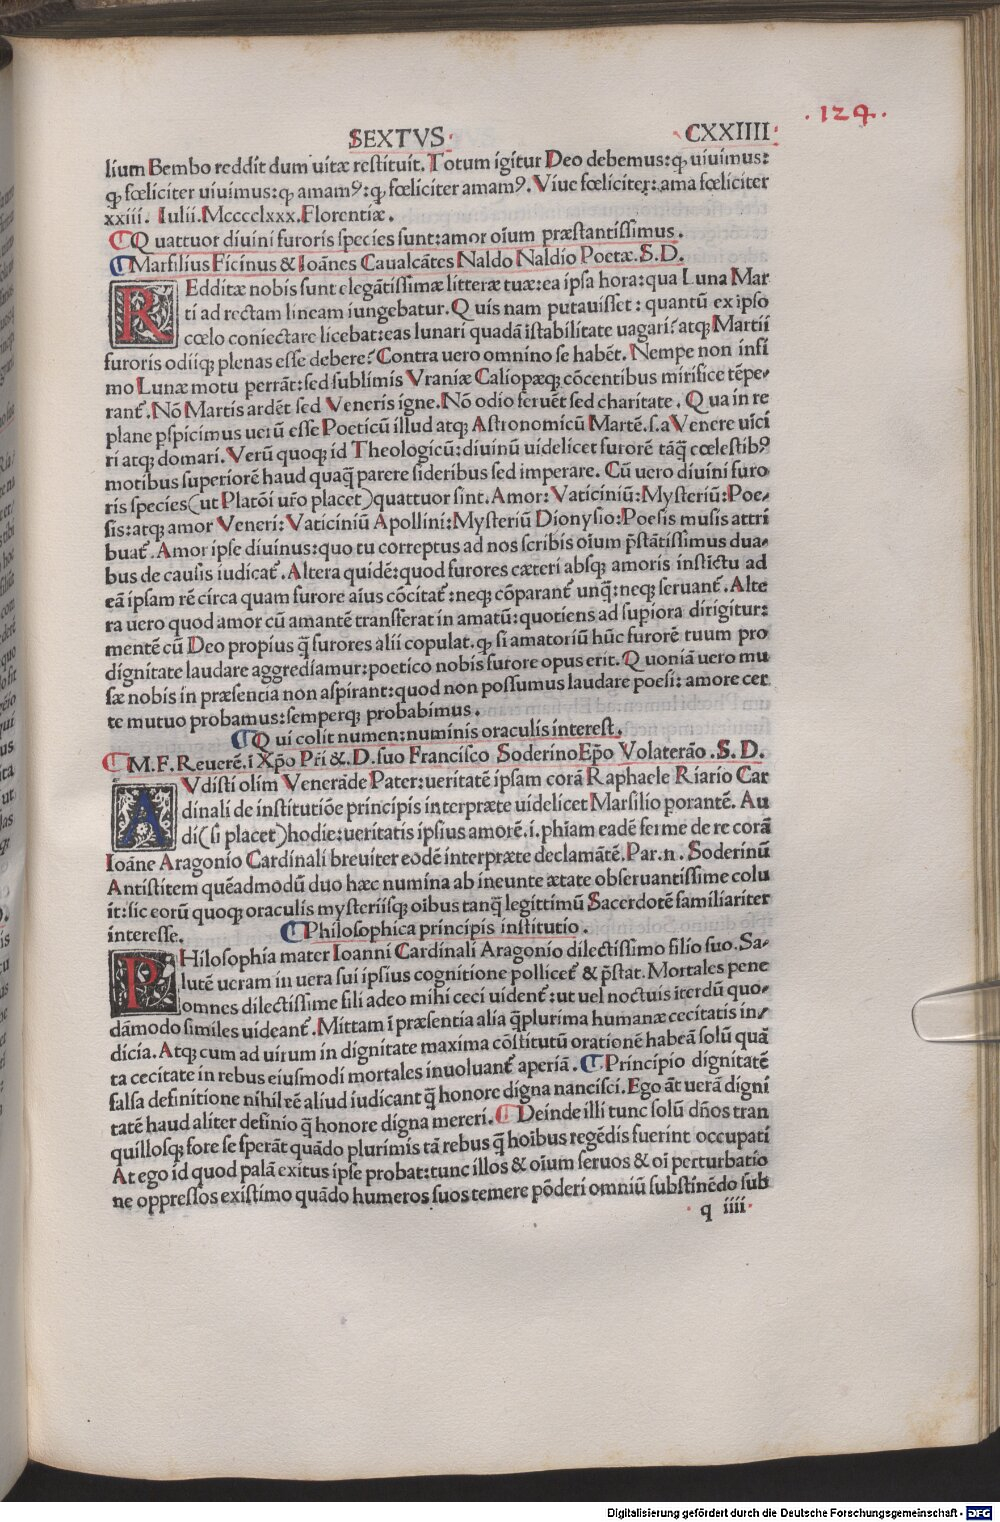 .124.
SEXTVS· CXXIIII·
lium Bembo reddit dum uitæ restituit. Totum igitur Deo debemus: ꝙ uiuimus:
ꝙ fœliciter uiuimus: ꝙ amamꝰ: ꝙ fœliciter amamꝰ. Viue fœliciter: ama fœliciter
xxiii. Iulii. Mcccclxxx. Florentiæ.
¶ Quattuor diuini furoris species sunt: amor oīum præstantissimus.
¶ Marsilius Ficinus & Ioānes Caualcātes Naldo Naldio Poetæ. S. D.
REdditæ nobis sunt elegātissimæ litteræ tuæ: ea ipsa hora: qua Luna Mar
ti ad rectam lineam iungebatur. Quis nam putauisset: quantū ex ipso
cœlo coniectare licebat: eas lunari quadā īstabilitate uagari? atq; Martii
furoris odiiq; plenas esse debere? Contra uero omnino se habēt. Nempe non infi
mo Lunæ motu perrāt: sed sublimis Vraniæ Caliopæq; cōcentibus mirifice tēpe-
rant̄. Nō Martis ardēt sed Veneris igne. Nō odio feruēt sed charitate. Qua in re
plane ꝑspicimus uerū esse Poeticū illud atq; Astronomicū Martē. s. a Venere uici
ri atq; domari. Verū quoq; id Theologicū: diuinū uidelicet furorē tāq̄ cœlestibꝰ
motibus superiorē haud quaq̄ parere sideribus sed imperare. Cū uero diuini furo
ris species (ut Platōi ur̄o placet) quattuor sint. Amor: Vaticiniū: Mysteriū: Poe-
sis: atq; amor Veneri: Vaticiniū Apollini: Mysteriū Dionysio: Poesis musis attri
buat̄. Amor ipse diuinus: quo tu correptus ad nos scribis oīum p̄stātissimus dua-
bus de causis iudicat̄. Altera quidē: quod furores cæteri absq; amoris instictu ad
eā ipsam rē circa quam furore aīus cōcitat̄: neq; cōparant̄ unq̄: neq; seruant̄. Alte
ra uero quod amor cū amantē transferat in amatū: quotiens ad supiora dirigitur:
mentē cū Deo propius q̄ furores alii copulat. ꝙ si amatoriū hūc furorē tuum pro
dignitate laudare aggrediamur: poetico nobis furore opus erit. Quoniā uero mu
sæ nobis in præsentia non aspirant: quod non possumus laudare poesi: amore cer
te mutuo probamus: semperq; probabimus.
¶ Qui colit numen: numinis oraculis interest.
¶ M. F. Reuerē. ī Xp̄o Pr̄i & .D. suo Francisco Soderino Ep̄o Volaterāo. S. D.
AVdisti olim Venerāde Pater: ueritatē ipsam corā Raphaele Riario Car
dinali de institutiōe principis interpræte uidelicet Marsilio ꝑorantē. Au
di (si placet) hodie: ueritatis ipsius amorē. i. ph̄iam eadē ferme de re corā
Ioāne Aragonio Cardinali breuiter eodē interpræte declamātē. Par. n. Soderinū
Antistitem quēadmodū duo hæc numina ab ineunte ætate obseruantissime colu
it: sic eorū quoq; oraculis mysteriisq; oībus tanq̄ legittimū Sacerdotē familiariter
interesse. ¶ Philosophica principis institutio.
PHilosophia mater Ioanni Cardinali Aragonio dilectissimo filio suo. Sa-
lutē ueram in uera sui ipsius cognitione pollicet̄ & p̄stat. Mortales pene
omnes dilectissime fili adeo mihi ceci uident̄: ut uel noctuis īterdū quo-
dāmodo similes uideant̄. Mittam ī præsentia alia q̄plurima humanæ cecitatis in-
dicia. Atq; cum ad uirum in dignitate maxima cōstitutū orationē habeā solū quā
ta cecitate in rebus eiusmodi mortales inuoluant̄ aperiā. ¶ Principio dignitatē
falsa definitione nihil rē aliud iudicant q̄ honore digna nancisci. Ego āt uerā digni
tatē haud aliter definio q̄ honore digna mereri. ¶ Deinde illi tunc solū dn̄os tran
quillosq; fore se sperāt quādo plurimis tā rebus q̄ hoībus regēdis fuerint occupati
At ego id quod palā exitus ipse probat: tunc illos & oīum seruos & oī perturbatio
ne oppressos existimo quādo humeros suos temere pōderi omniū substinēdo sub
q iiii
Digitalisierung gefördert durch die Deutsche Forschungsgemeinschaft - DFG